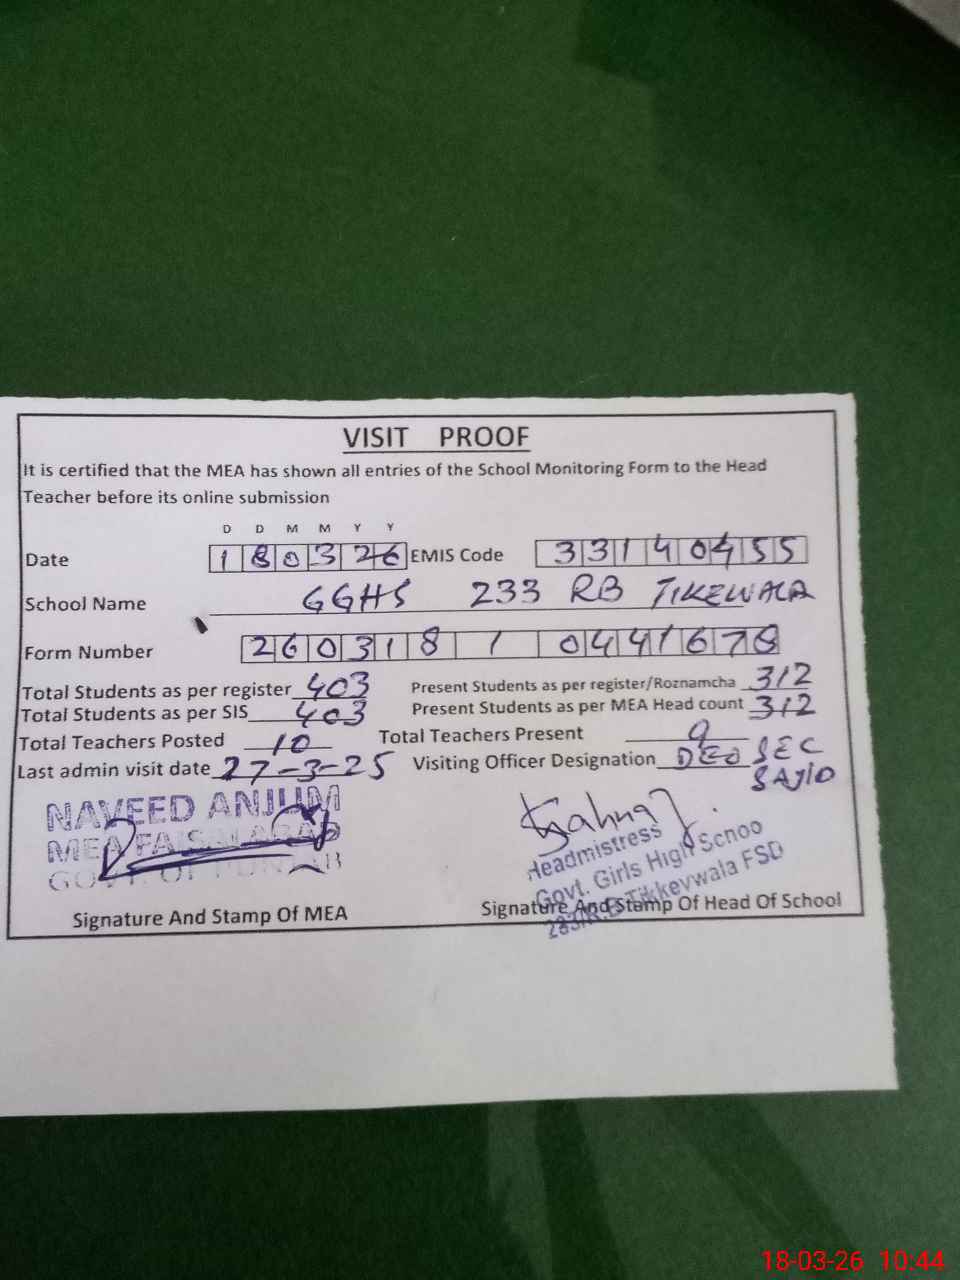 VISIT PROOF
It is certified that the MEA has shown all entries of the School Monitoring Form to the Head
Teacher before its online submission
D D M M Y Y
Date 180326 EMIS Code 33140455
School Name GGHS 233 RB TIKEWALA
Form Number 260318 1 0441678
Total Students as per register 403 Present Students as per register/Roznamcha 312
Total Students as per SIS 403 Present Students as per MEA Head count 312
Total Teachers Posted 10 Total Teachers Present 9
Last admin visit date 27-3-25 Visiting Officer Designation DEO SEC
SAJID
NAVEED ANJUM
MEA FAISALABAD
GOVT. OF PUNJAB
Headmistress
Govt. Girls High School
R.B Tikkevwala FSD
Signature And Stamp Of MEA Signature And Stamp Of Head Of School
18-03-26 10:44